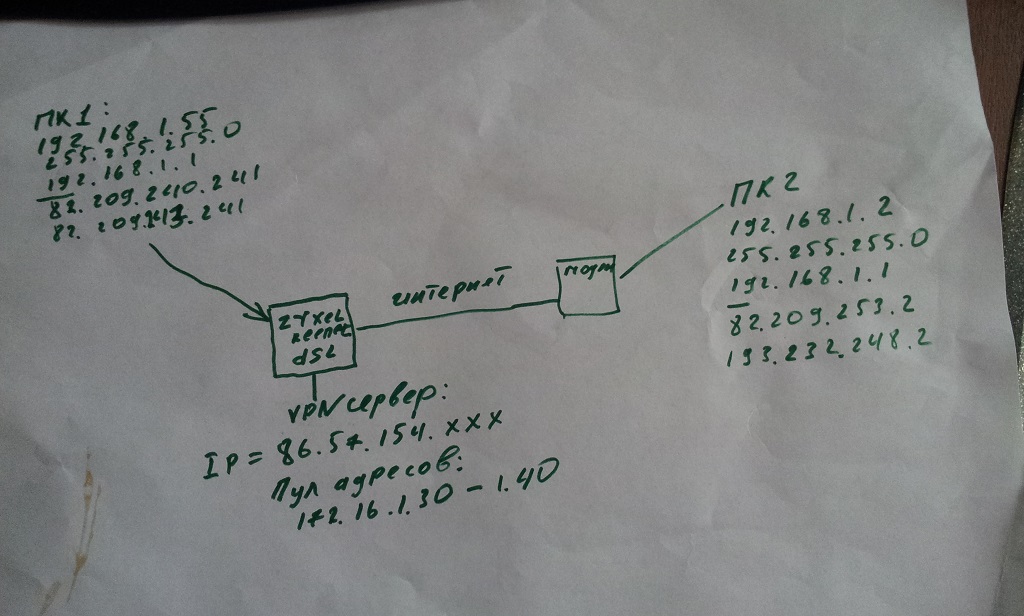 ПК1:
192.168.1.55
255.255.255.0
192.168.1.1
82.209.240.241
82.209.243.241
ПК2
192.168.1.2
255.255.255.0
192.168.1.1
82.209.253.2
193.232.248.2
интернет
модм
ZYXEL
keenetic
dSL
VPN сервер:
IP = 86.57.154.xxx
Пул адресов:
172.16.1.30 - 1.40